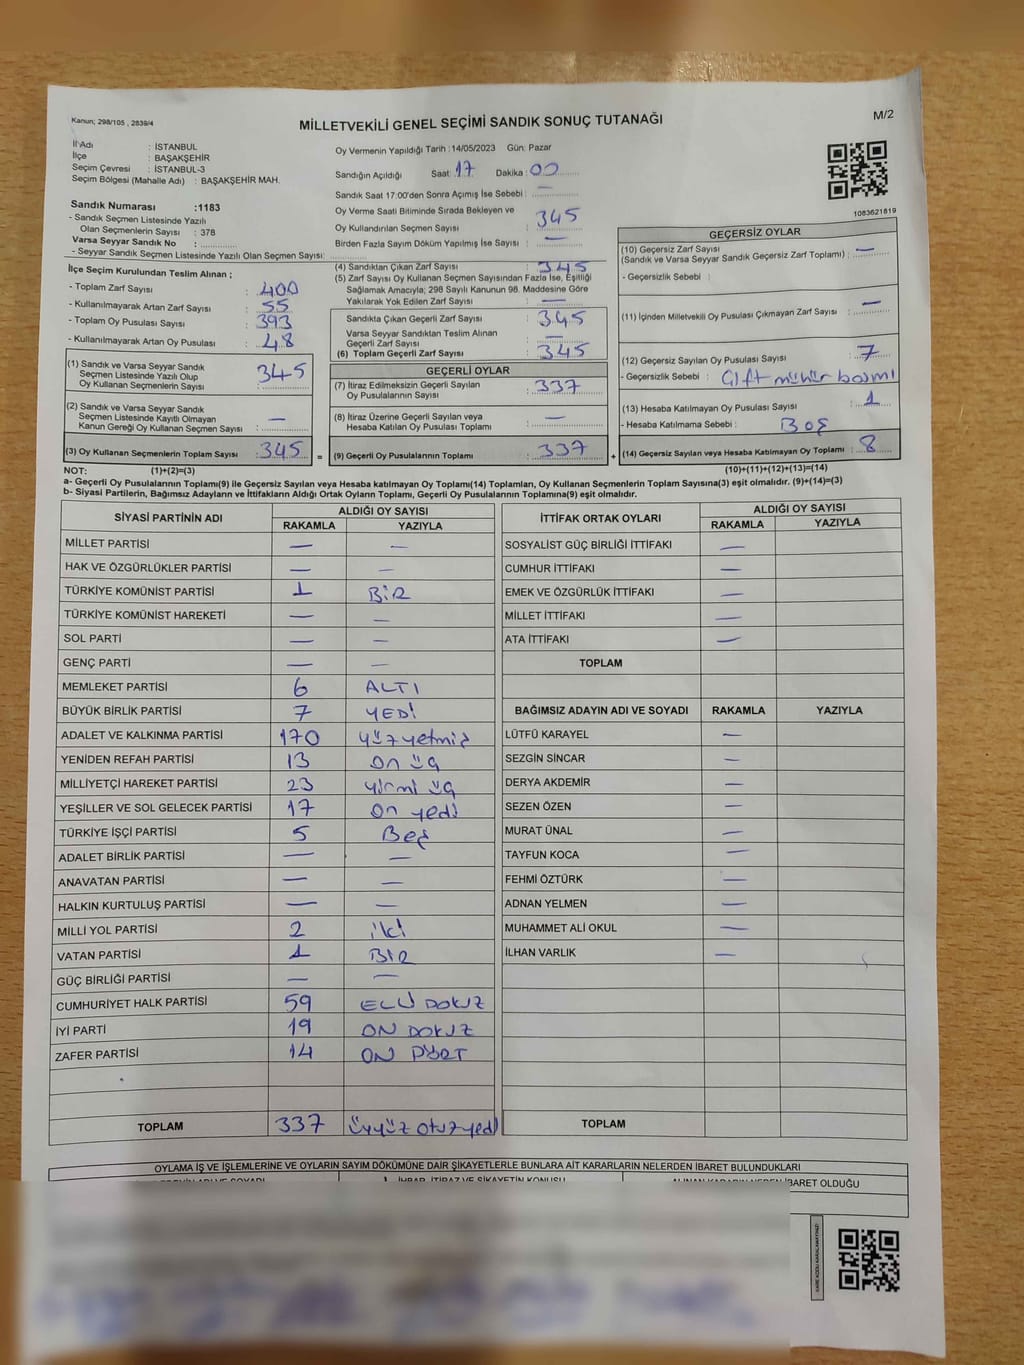 Kanun; 298/105 , 2839/4
MİLLETVEKİLİ GENEL SEÇİMİ SANDIK SONUÇ TUTANAĞI
M/2
İl Adı : İSTANBUL
İlçe : BAŞAKŞEHİR
Seçim Çevresi : İSTANBUL-3
Seçim Bölgesi (Mahalle Adı) : BAŞAKŞEHİR MAH.
Sandık Numarası :1183
- Sandık Seçmen Listesinde Yazılı
Olan Seçmenlerin Sayısı : 378
Varsa Seyyar Sandık No :
- Seyyar Sandık Seçmen Listesinde Yazılı Olan Seçmen Sayısı:
Oy Vermenin Yapıldığı Tarih :14/05/2023 Gün: Pazar
Sandığın Açıldığı Saat :17 Dakika :00
Sandık Saat 17:00'den Sonra Açımış İse Sebebi : —
Oy Verme Saati Bitiminde Sırada Bekleyen ve
Oy Kullandırılan Seçmen Sayısı : 345
Birden Fazla Sayım Döküm Yapılmış İse Sayısı : —
1083621819
İlçe Seçim Kurulundan Teslim Alınan ;
- Toplam Zarf Sayısı : 400
- Kullanılmayarak Artan Zarf Sayısı : 55
- Toplam Oy Pusulası Sayısı : 393
- Kullanılmayarak Artan Oy Pusulası : 48
(1) Sandık ve Varsa Seyyar Sandık
Seçmen Listesinde Yazılı Olup
Oy Kullanan Seçmenlerin Sayısı : 345
(2) Sandık ve Varsa Seyyar Sandık
Seçmen Listesinde Kayıtlı Olmayan
Kanun Gereği Oy Kullanan Seçmen Sayısı : —
(3) Oy Kullanan Seçmenlerin Toplam Sayısı : 345 =
(4) Sandıktan Çıkan Zarf Sayısı : 345
(5) Zarf Sayısı Oy Kullanan Seçmen Sayısından Fazla İse, Eşitliği
Sağlamak Amacıyla; 298 Sayılı Kanunun 98. Maddesine Göre
Yakılarak Yok Edilen Zarf Sayısı : —
Sandıkta Çıkan Geçerli Zarf Sayısı : 345
Varsa Seyyar Sandıktan Teslim Alınan
Geçerli Zarf Sayısı : —
(6) Toplam Geçerli Zarf Sayısı : 345
GEÇERLİ OYLAR
(7) İtiraz Edilmeksizin Geçerli Sayılan
Oy Pusulalarının Sayısı : 337
(8) İtiraz Üzerine Geçerli Sayılan veya
Hesaba Katılan Oy Pusulası Toplamı : —
(9) Geçerli Oy Pusulalarının Toplamı : 337 +
GEÇERSİZ OYLAR
(10) Geçersiz Zarf Sayısı
(Sandık ve Varsa Seyyar Sandık Geçersiz Zarf Toplamı) : —
- Geçersizlik Sebebi :
(11) İçinden Milletvekili Oy Pusulası Çıkmayan Zarf Sayısı : —
(12) Geçersiz Sayılan Oy Pusulası Sayısı : 7
- Geçersizlik Sebebi : Çift mühür basımı
(13) Hesaba Katılmayan Oy Pusulası Sayısı : 1
- Hesaba Katılmama Sebebi : Boş
(14) Geçersiz Sayılan veya Hesaba Katılmayan Oy Toplamı : 8
NOT: (1)+(2)=(3) (10)+(11)+(12)+(13)=(14)
a- Geçerli Oy Pusulalarının Toplamı(9) ile Geçersiz Sayılan veya Hesaba katılmayan Oy Toplamı(14) Toplamları, Oy Kullanan Seçmenlerin Toplam Sayısına(3) eşit olmalıdır. (9)+(14)=(3)
b- Siyasi Partilerin, Bağımsız Adayların ve İttifakların Aldığı Ortak Oyların Toplamı, Geçerli Oy Pusulalarının Toplamına(9) eşit olmalıdır.
SİYASİ PARTİNİN ADI ALDIĞI OY SAYISI
RAKAMLA YAZIYLA
MİLLET PARTİSİ — —
HAK VE ÖZGÜRLÜKLER PARTİSİ — —
TÜRKİYE KOMÜNİST PARTİSİ 1 BiR
TÜRKİYE KOMÜNİST HAREKETİ — —
SOL PARTİ — —
GENÇ PARTİ — —
MEMLEKET PARTİSİ 6 ALTI
BÜYÜK BİRLİK PARTİSİ 7 YEDİ
ADALET VE KALKINMA PARTİSİ 170 yüzyetmiş
YENİDEN REFAH PARTİSİ 13 on üç
MİLLİYETÇİ HAREKET PARTİSİ 23 yirmi üç
YEŞİLLER VE SOL GELECEK PARTİSİ 17 on yedi
TÜRKİYE İŞÇİ PARTİSİ 5 Beş
ADALET BİRLİK PARTİSİ — —
ANAVATAN PARTİSİ — —
HALKIN KURTULUŞ PARTİSİ — —
MİLLİ YOL PARTİSİ 2 iki
VATAN PARTİSİ 1 BİR
GÜÇ BİRLİĞİ PARTİSİ — —
CUMHURİYET HALK PARTİSİ 59 ELLİ DOKUZ
İYİ PARTİ 19 ON DOKUZ
ZAFER PARTİSİ 14 ON DÖRT
TOPLAM 337 üçyüz otuzyedi
İTTİFAK ORTAK OYLARI ALDIĞI OY SAYISI
RAKAMLA YAZIYLA
SOSYALİST GÜÇ BİRLİĞİ İTTİFAKI —
CUMHUR İTTİFAKI —
EMEK VE ÖZGÜRLÜK İTTİFAKI —
MİLLET İTTİFAKI —
ATA İTTİFAKI —
TOPLAM
BAĞIMSIZ ADAYIN ADI VE SOYADI RAKAMLA YAZIYLA
LÜTFÜ KARAYEL —
SEZGİN SİNCAR —
DERYA AKDEMİR —
SEZEN ÖZEN —
MURAT ÜNAL —
TAYFUN KOCA —
FEHMİ ÖZTÜRK —
ADNAN YELMEN —
MUHAMMET ALİ OKUL —
İLHAN VARLIK —
TOPLAM
OYLAMA İŞ VE İŞLEMLERİNE VE OYLARIN SAYIM DÖKÜMÜNE DAİR ŞİKAYETLERLE BUNLARA AİT KARARLARIN NELERDEN İBARET BULUNDUKLARI
İHBAR, İTİRAZ VE ŞİKAYETİN KONUSU
İBARET OLDUĞU